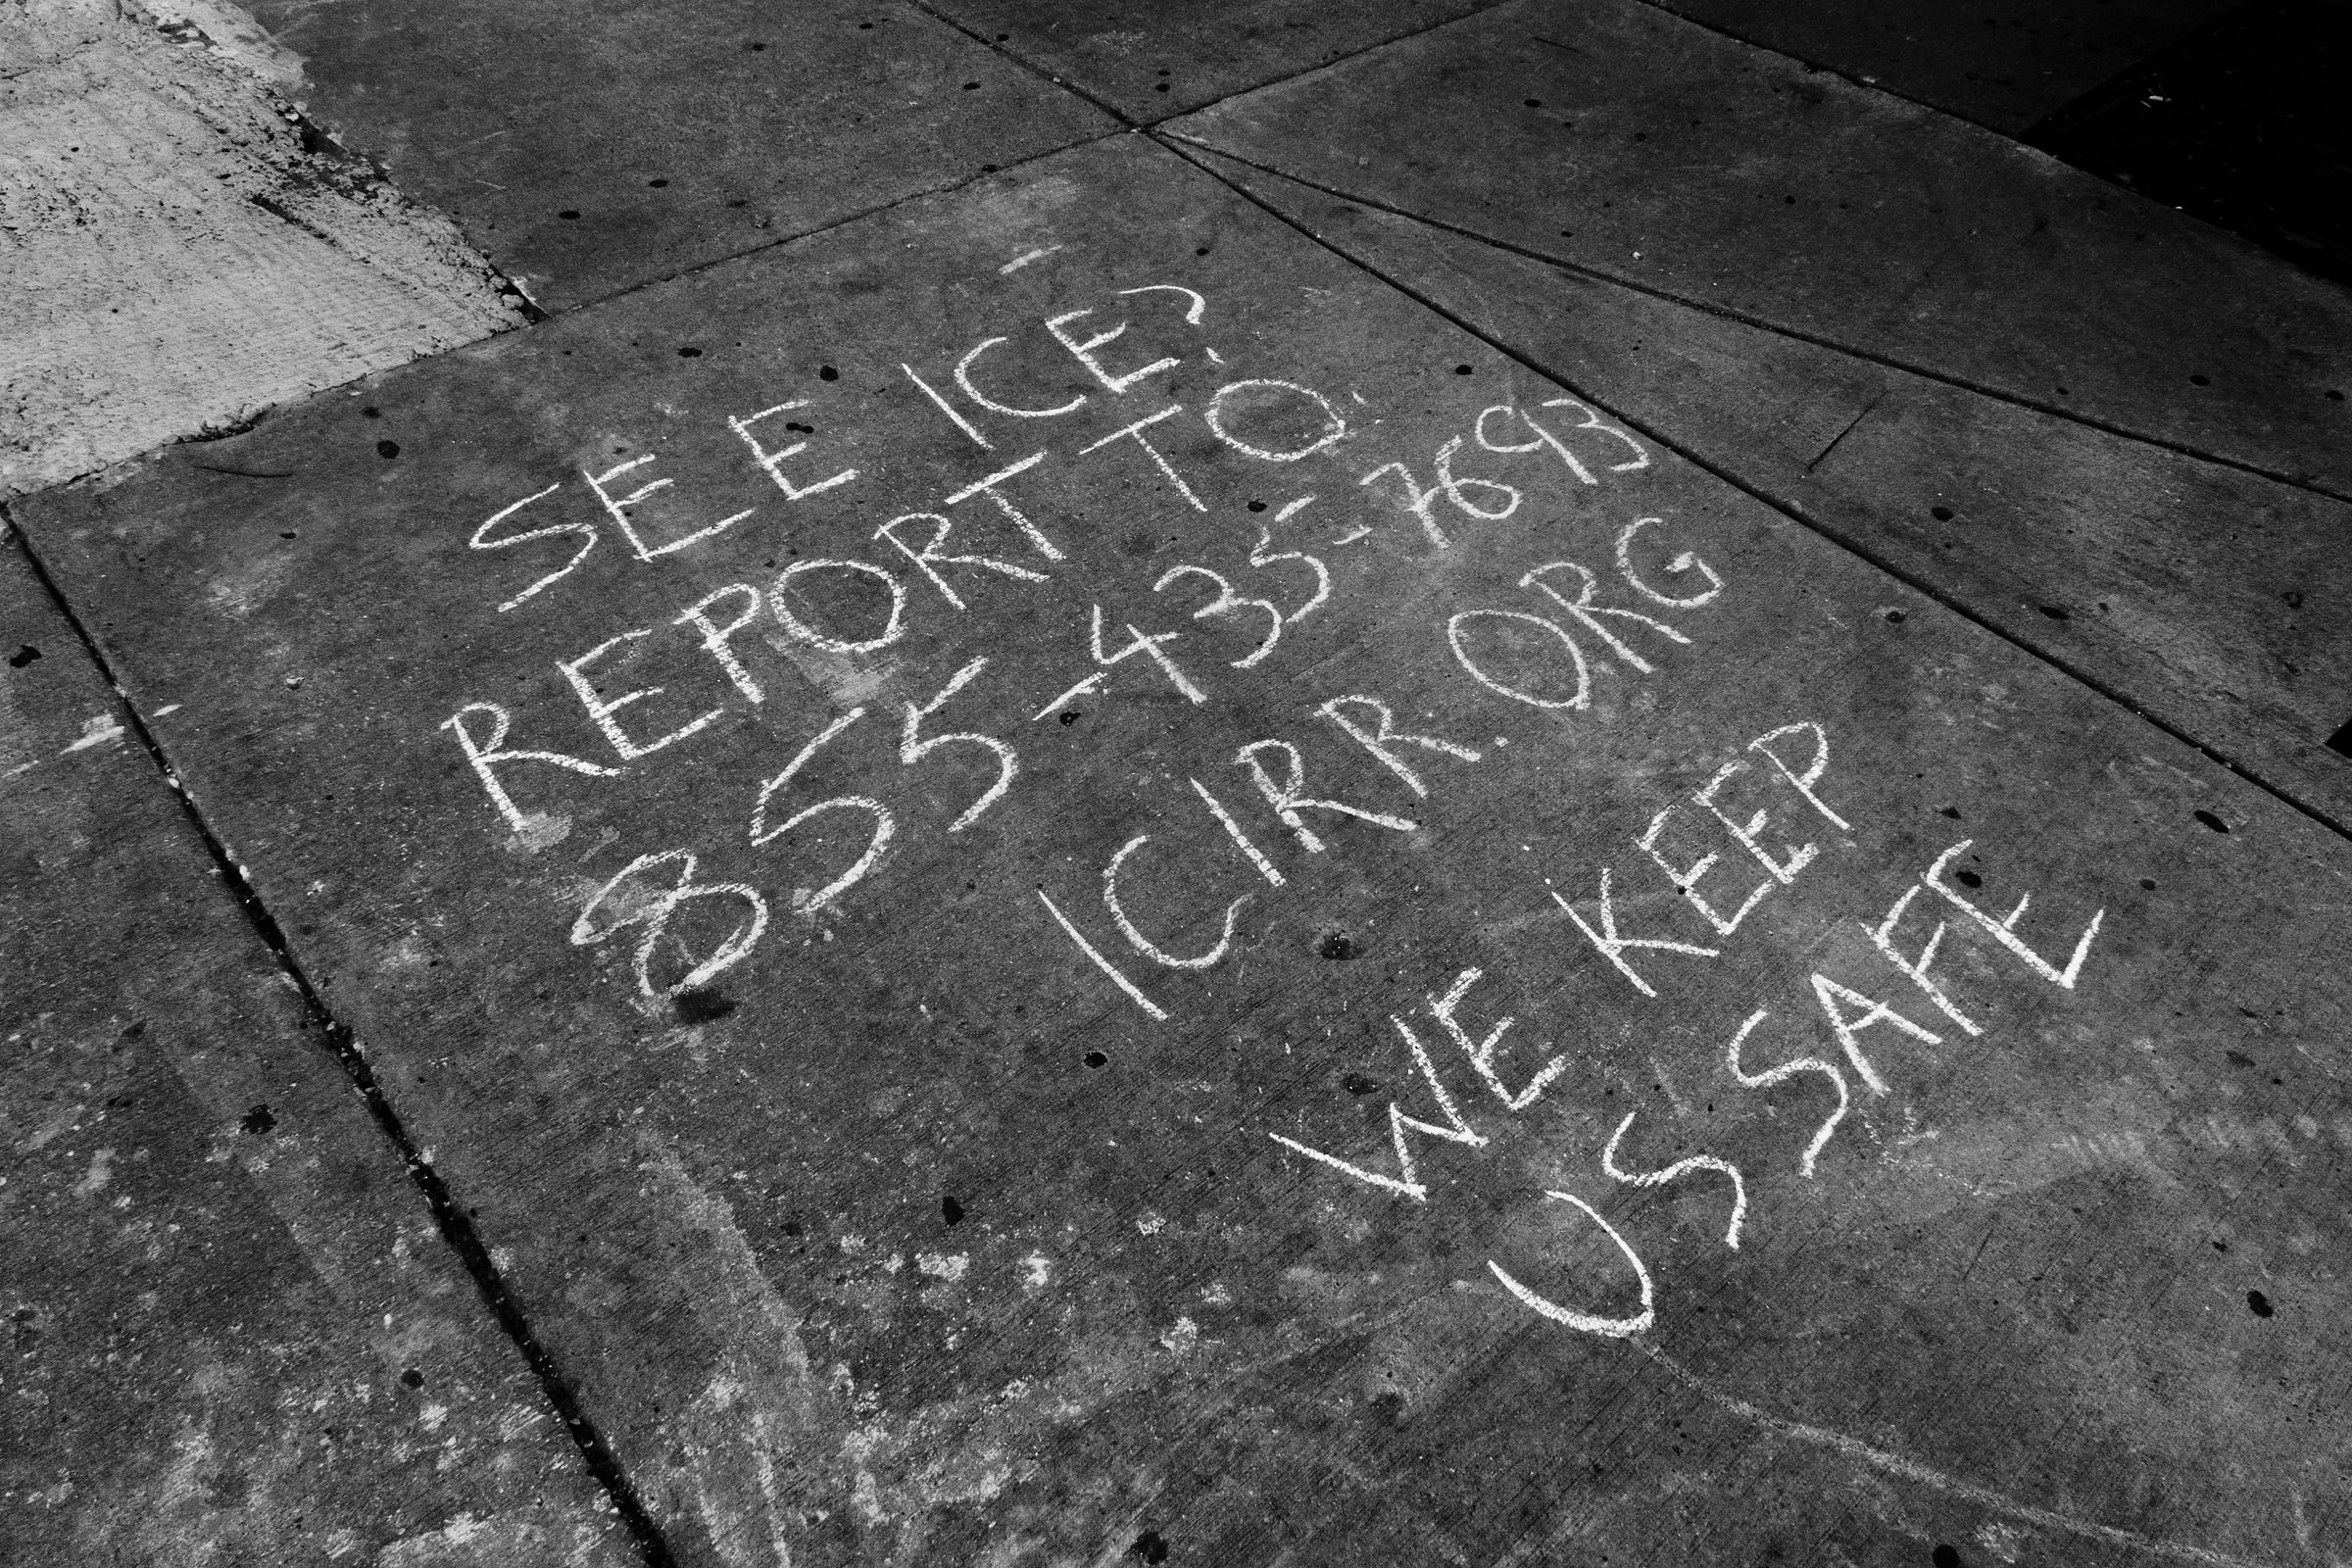 SEE ICE?
REPORT TO:
855-435-7693
ICIRR.ORG
WE KEEP
US SAFE